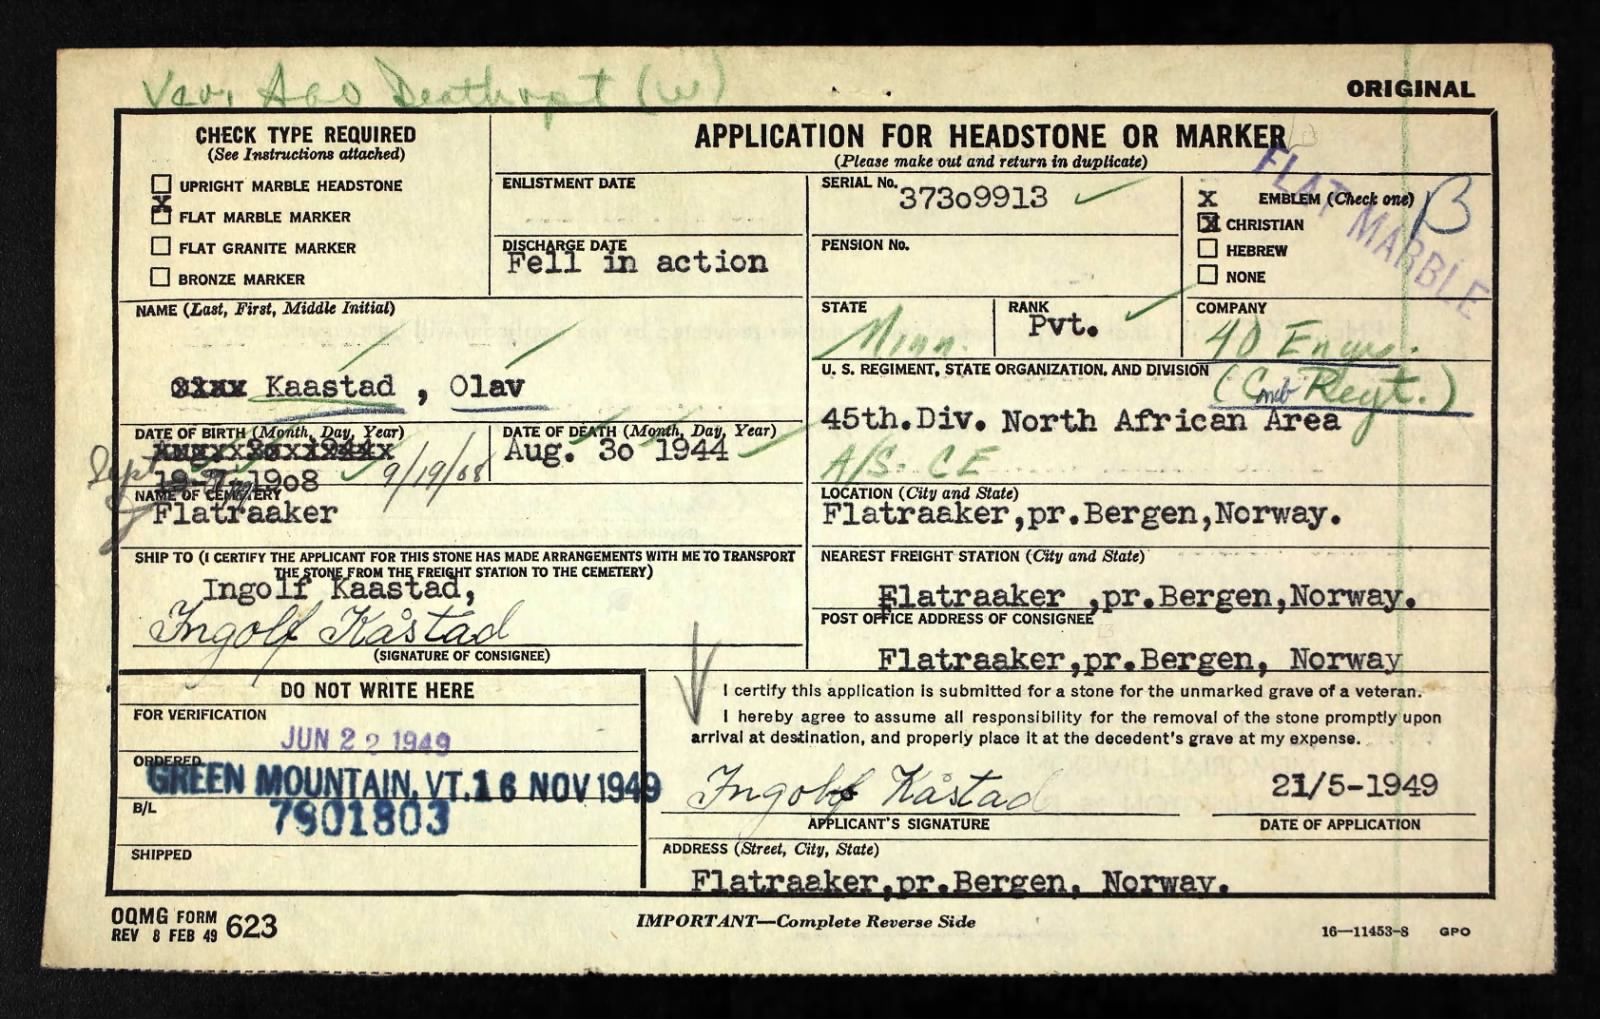 Ver. AGO Death rpt (W)
ORIGINAL
CHECK TYPE REQUIRED
(See Instructions attached)
☐ UPRIGHT MARBLE HEADSTONE
X FLAT MARBLE MARKER
☐ FLAT GRANITE MARKER
☐ BRONZE MARKER
APPLICATION FOR HEADSTONE OR MARKER
(Please make out and return in duplicate)
ENLISTMENT DATE
DISCHARGE DATE
Fell in action
SERIAL No.
373o9913 ✓
PENSION No.
X EMBLEM (Check one)
X CHRISTIAN
☐ HEBREW
☐ NONE
B
FLAT MARBLE
NAME (Last, First, Middle Initial)
Kaastad , Olav
STATE
Minn.
RANK
Pvt.
COMPANY
40 Engrs.
(Cmb Regt.)
U. S. REGIMENT, STATE ORGANIZATION, AND DIVISION
45th.Div. North African Area
A/S. CE
DATE OF BIRTH (Month, Day, Year)
Aug. 3o 1944
19-7-19o8
Sept
9/19/08
DATE OF DEATH (Month, Day, Year)
Aug. 3o 1944
NAME OF CEMETERY
Flatraaker
LOCATION (City and State)
Flatraaker,pr.Bergen,Norway.
SHIP TO (I CERTIFY THE APPLICANT FOR THIS STONE HAS MADE ARRANGEMENTS WITH ME TO TRANSPORT
THE STONE FROM THE FREIGHT STATION TO THE CEMETERY)
Ingolf Kaastad,
Ingolf Kåstad
(SIGNATURE OF CONSIGNEE)
NEAREST FREIGHT STATION (City and State)
Flatraaker ,pr.Bergen,Norway.
POST OFFICE ADDRESS OF CONSIGNEE
Flatraaker,pr.Bergen, Norway
DO NOT WRITE HERE
FOR VERIFICATION
JUN 22 1949
ORDERED
GREEN MOUNTAIN, VT. 16 NOV 1949
B/L
7901803
SHIPPED
I certify this application is submitted for a stone for the unmarked grave of a veteran.
I hereby agree to assume all responsibility for the removal of the stone promptly upon
arrival at destination, and properly place it at the decedent's grave at my expense.
Ingolf Kåstad
APPLICANT'S SIGNATURE
21/5-1949
DATE OF APPLICATION
ADDRESS (Street, City, State)
Flatraaker,pr.Bergen, Norway.
OQMG FORM 623
REV 8 FEB 49
IMPORTANT—Complete Reverse Side
16—11453-8 GPO